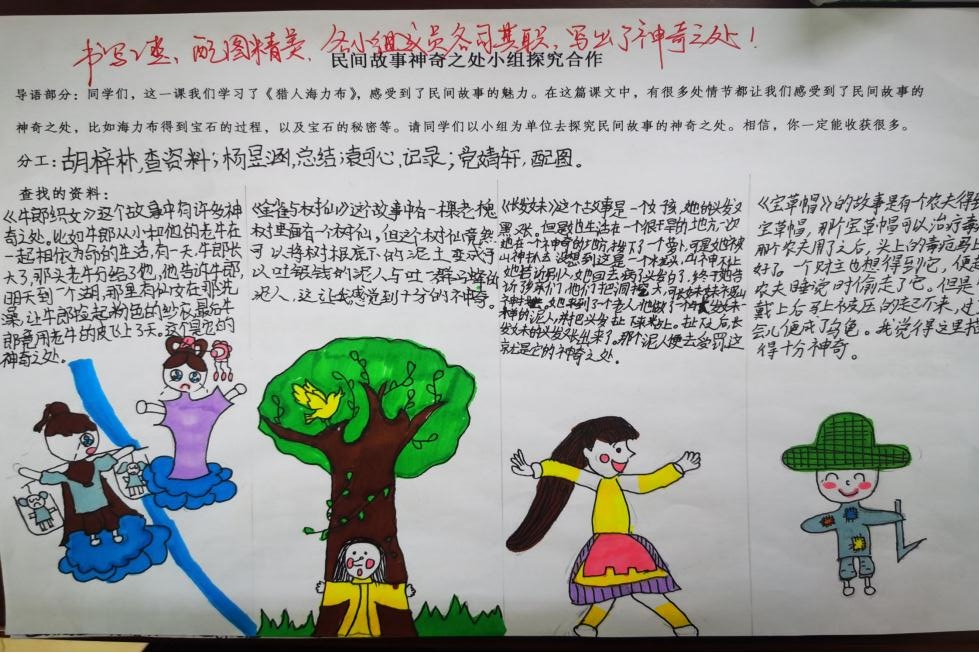 书写工整、配图精美，各小组成员各司其职，写出了神奇之处！
民间故事神奇之处小组探究合作
导语部分：同学们，这一课我们学习了《猎人海力布》，感受到了民间故事的魅力。在这篇课文中，有很多处情节都让我们感受到了民间故事的
神奇之处，比如海力布得到宝石的过程，以及宝石的秘密等。请同学们以小组为单位去探究民间故事的神奇之处。相信，你一定能收获很多。
分工：胡梓林，查资料；杨昱涵，总结；袁可心，记录；党婧轩，配图。
查找的资料：
《牛郎织女》这个故事中有许多神
奇之处。比如牛郎从小和他的老牛在
一起相依为命的生活，有一天，牛郎长
大了，那头老牛分给了他，他告诉牛郎，
明天到一个湖，那里有仙女在那洗
澡，让牛郎捡起粉色的纱衣，最后牛
郎竟用老牛的皮飞上了天。这个是它的
神奇之处。
《金雀与树仙》这个故事中有一棵老槐
树里面有一个树仙，但这个树仙竟然
可以将树根底下的泥土变成可
以吐银钱的泥人与吐一群马蜂的
泥人，这让我感觉到十分的神奇。
《长发妹》这个故事是一个女孩，她的头发又
黑又长。但是她生活在一个很旱的地方，一次
她在一个神奇的地方，拔了一个萝卜，可是她被
山神抓去，没想到这是一个水源，山神不让
她告诉别人，她回去病了头发白了，终于她告
诉了乡亲们，他们把洞凿大，
她来到了个老人，他做了一个
神的泥人，并把头发扯下来
发妹的头发又长出来了。那个泥人便去受罚，这
就是它的神奇之处。
《宝草帽》的故事是有个农夫得
宝草帽，那个宝草帽可以治疗
那个农夫用了之后，头上的毒疮马
好了。一个财主也想得到它，便
农夫睡觉时偷走了它。但是
戴上后马上被压的起不来，
会儿便成了乌龟。我觉得这里
得十分神奇。